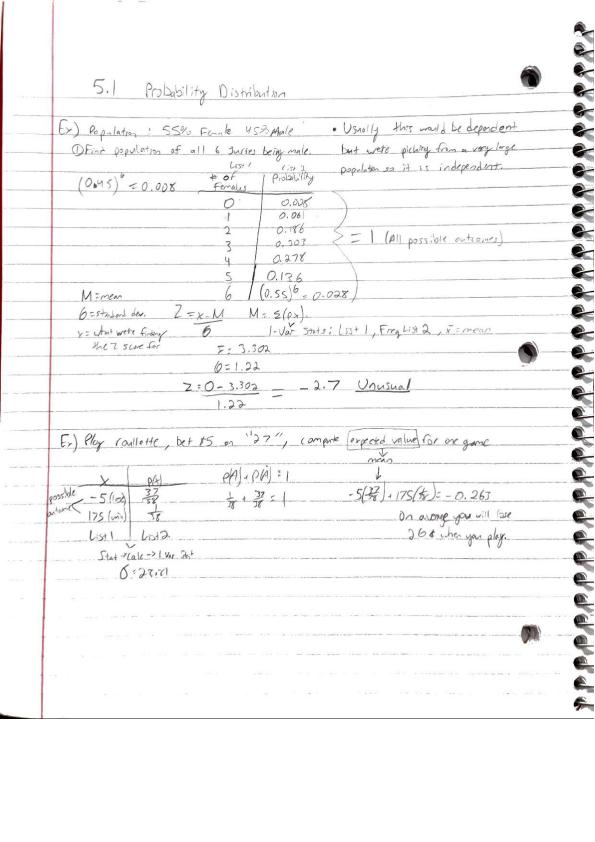 5.1 Probability Distribution
Ex) Population: 55% Female 45% Male
• Usually this would be dependent
① Find population of all 6 Juries being male.
but we're picking from a very large
population so it is independent.
(0.45)⁶ = 0.008
List 1 List 2
# of Females Probability
0 0.008
1 0.061
2 0.186
3 0.303
4 0.278
5 0.136
6 (0.55)⁶ = 0.028
= 1 (All possible outcomes)
M = mean
6 = standard dev. Z = x - M / 6 M = Σ(px)
x = what we're finding the Z score for
1-Var Stats: List 1, Freq List 2, x̄ = mean
x̄ = 3.302
6 = 1.22
Z = 0 - 3.302 / 1.22 = -2.7 Unusual
Ex) Play roullotte, bet $5 on "27", compute expected value for one game
mean
x P(A)
possible outcomes
-5 (lose) 37/38
175 (win) 1/38
List 1 List 2
P(A) + P(Ā) = 1
1/38 + 37/38 = 1
-5(37/38) + 175(1/38) = -0.263
On average you will lose
26¢ when you play.
Stat → Calc → 1 Var Stat